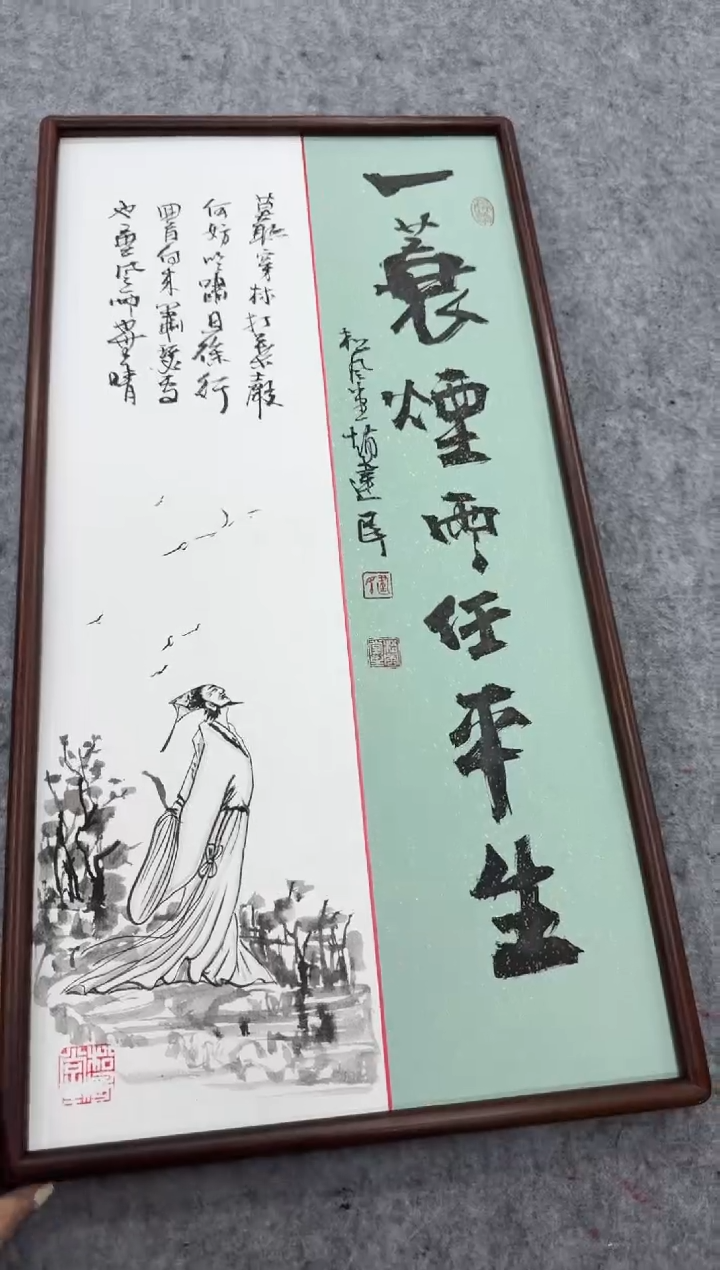 一蓑煙雨任平生
松风堂
莫聽穿林打葉聲
何妨吟嘯且徐行
回首向来蕭瑟處
也無风雨也無晴